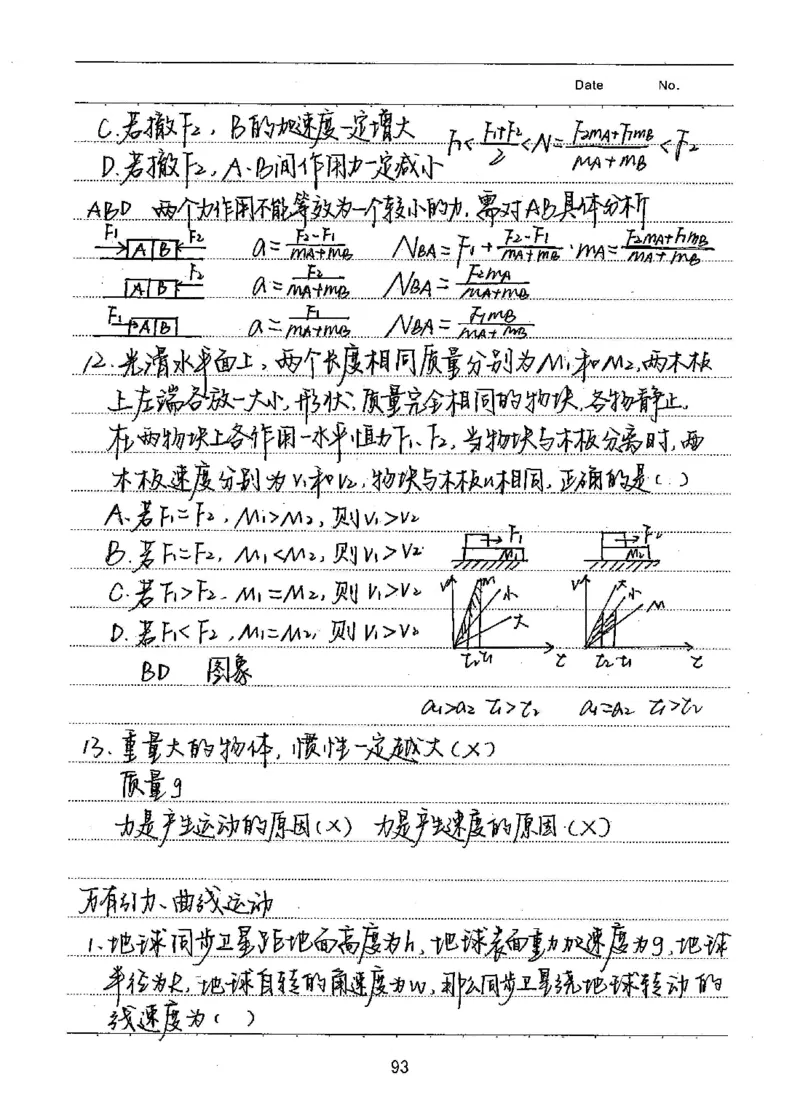 Date No.
C.若撤F2，B的加速度一定增大 F1<(F1+F2)/2<N=(F2mA+F1mB)/(mA+mB)<F2
D.若撤F2，A、B间作用力一定减小
ABD 两个力作用不能等效为一个较小的力，需对AB具体分析
F1 A B F2 a=(F2-F1)/(mA+mB) NBA=F1+(F2-F1)/(mA+mB)·mA=(F2mA+F1mB)/(mA+mB)
A B F2 a=F2/(mA+mB) NBA=F2mA/(mA+mB)
F1 A B a=F1/(mA+mB) NBA=F1mB/(mA+mB)
12.光滑水平面上，两个长度相同质量分别为M1和M2，两木板
上左端各放一大小，形状，质量完全相同的物块，各物静止。
在两物块上各作用一水平恒力F1、F2，当物块与木板分离时，两
木板速度分别为v1和v2，物块与木板u相同，正确的是（ ）
A.若F1=F2，M1>M2，则v1>v2
B.若F1=F2，M1<M2，则v1>v2 F1 M1 F2 M2
C.若F1>F2、M1=M2，则v1>v2 v m 小 v 大 小 M
D.若F1<F2，M1=M2，则v1>v2 大
BD 图象 t2 t1 t t2 t1 t
a1>a2 t1>t2 a1=a2 t1>t2
13、重量大的物体，惯性一定越大（×）
质量g
力是产生运动的原因（×） 力是产生速度的原因（×）
万有引力、曲线运动
1、地球同步卫星距地面高度为h，地球表面重力加速度为g，地球
半径为R，地球自转的角速度为w，那么同步卫星绕地球转动的
线速度为（ ）
93